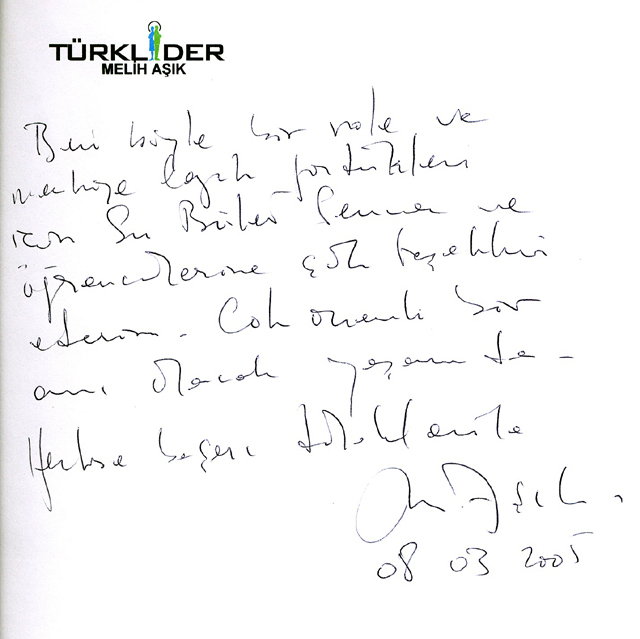 TÜRKLİDER
MELİH AŞIK
Beni böyle bir role ve
layık gördükleri
için Sn ve
öğrencilerine çok teşekkür
ederim. Çok önemli bir
anı olacak yaşamımda -
Herkese başarı dileklerimle
Aşık
08 03 2005